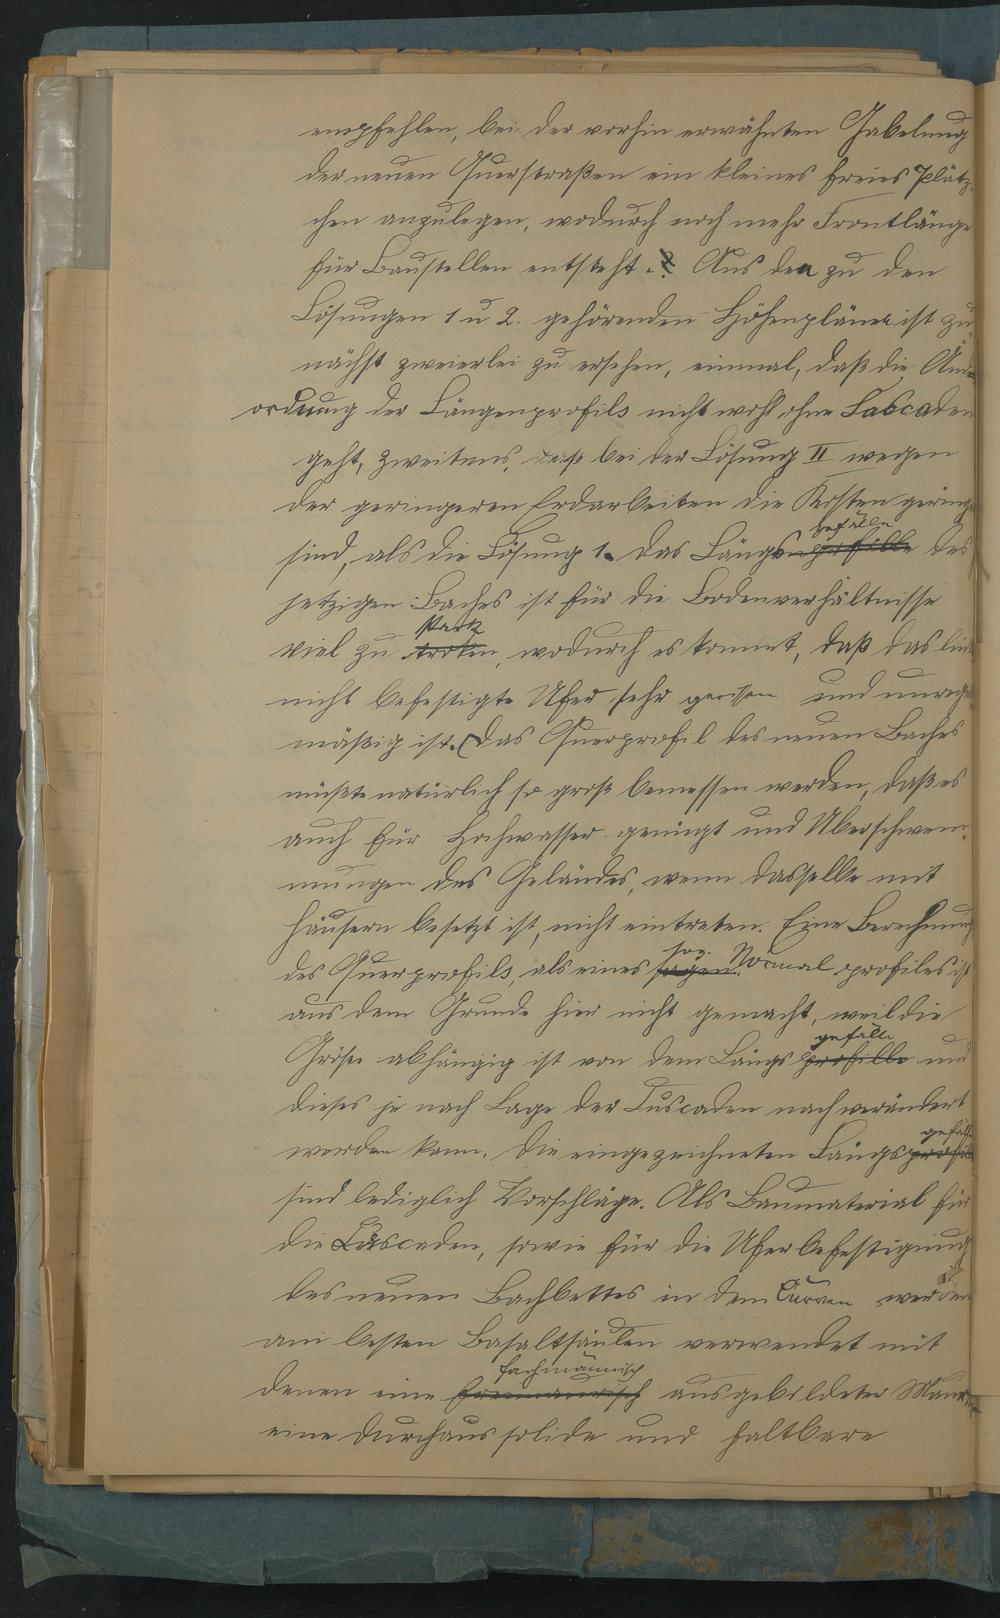 empfehlen, bei der vorhin erwähnten Gabelung
der neuen Querstraßen ein kleines freies Plätz-
chen anzulegen, wodurch noch mehr Frontlänge
für Baustellen entsteht. Aus den zu den
Lösungen 1 u 2. gehörenden Höhenpläne ist zu-
nächst zweierlei zu ersehen, einmal, daß die
ordnung der Längenprofils nicht wohl ohne Cascaden
geht, zweitens, daß bei der Lösung II wegen
der geringeren Erdarbeiten die Kosten gering
sind, als die Lösung 1. Das Längen gefälle profille des
jetzigen Baches ist für die Bodenverhältnisse
viel zu stark troken, wodurch es kommt, daß das
nicht befestigte Ufer sehr gerissen und unregel
mäßig ist. (Das Querprofil des neuen Baches
müßte natürlich so groß bemessen werden, daß es
auch für Hochwasser genügt und Überschwem-
mungen des Geländes, wenn dasselbe mit
Häusern besetzt ist, nicht eintreten. Eine Berechnung
des Querprofils, als eines sog. sogen. Normal profiles ist
aus dem Grunde hier nicht gemacht, weil die
Größe abhängig ist von dem Längs gefälle profille und
dieses je nach Lage der Cascaden nach verändert
werden kann. Die eingezeichneten Längs gefäll
sind lediglich Vorschläge. Als Baumaterial für
die Cascaden, sowie für die Uferbefestigung
des neuen Bachbettes in dem Curven werden
am besten Basaltsäulen verwendet mit
denen eine fachmännisch ausgebildeter Maurer
eine durchaus solide und haltbare